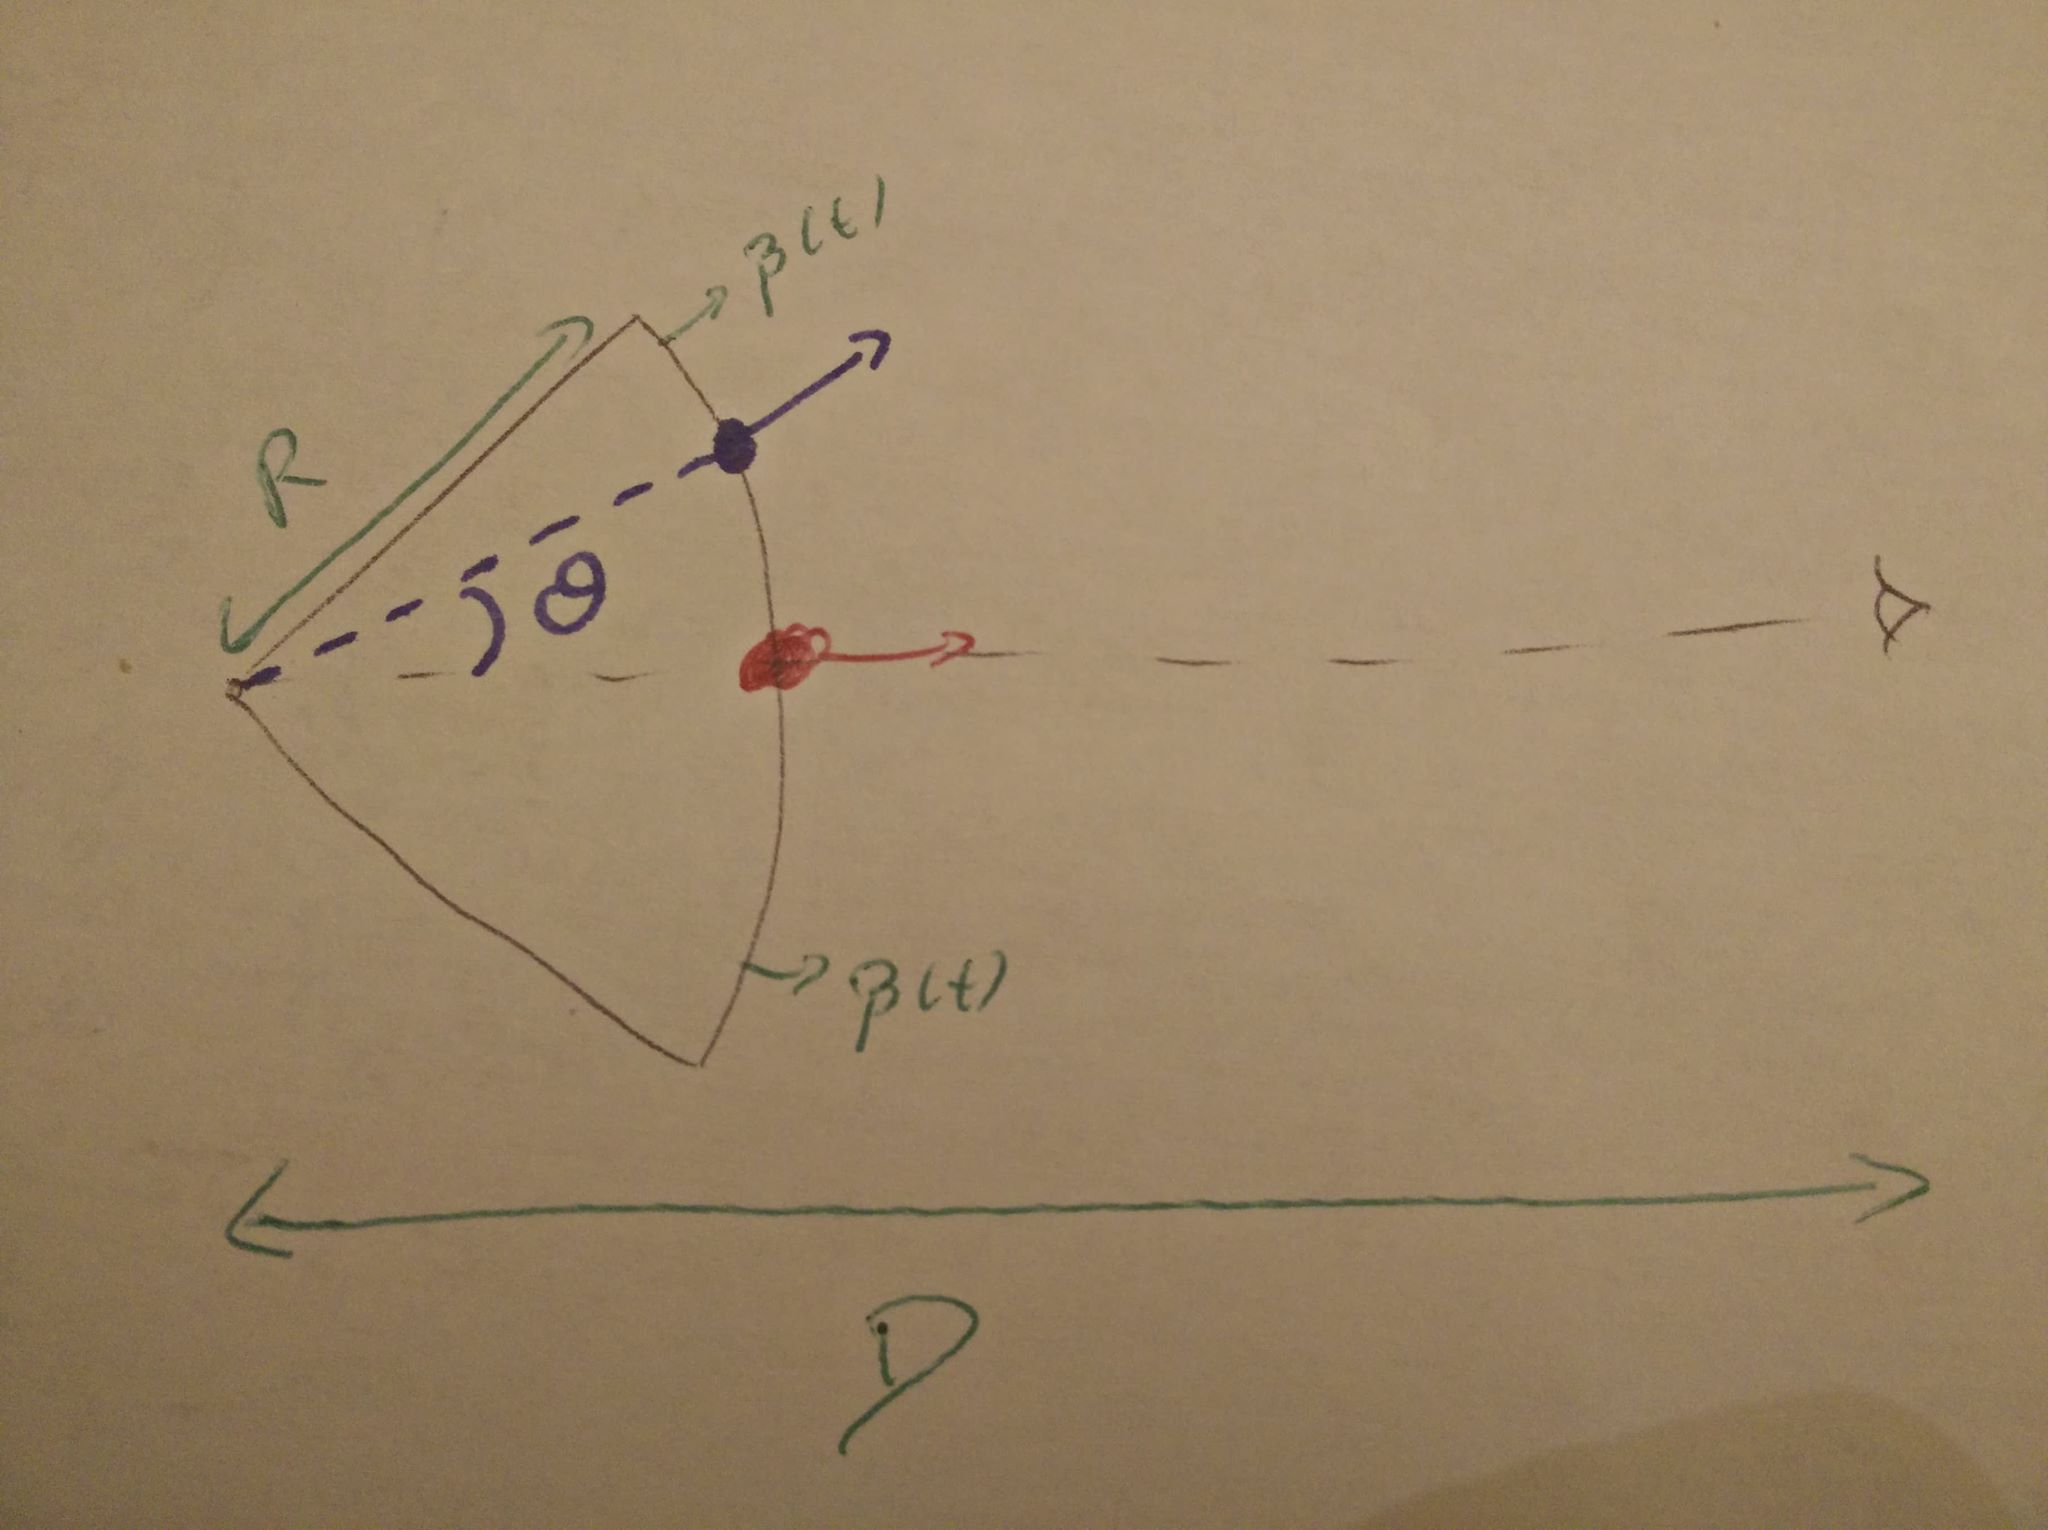 β(t)
R
θ
β(t)
D